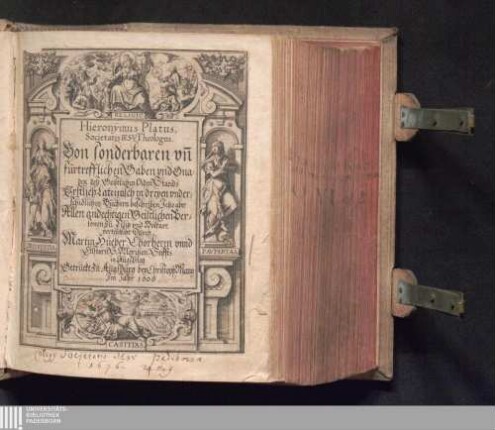 RELIGIO
Hieronymus Platus.
Societatis IESV Theologus.
Von sonderbaren vñ
fürtrefflichen Gaben vnd Gna
den deß Geistlichen Ordens Stands
Erstlich Lateinisch in dreyen vnder
schidlichen Büchern beschriben Jetz aber
Allen andechtigen Geistlichen Per
sonen zu Nutz vnd
verteutscht Durch
Martin Hueber Chorherrn vnnd
S. Moritzen Stifft
in Augsburg
Getruckt zu Augspurg bey Christoff Mang
Im Jahr 1608
PAVPERTAS
CASTITAS
Societatis
1676
UNIVERSITÄTS-
BIBLIOTHEK
PADERBORN